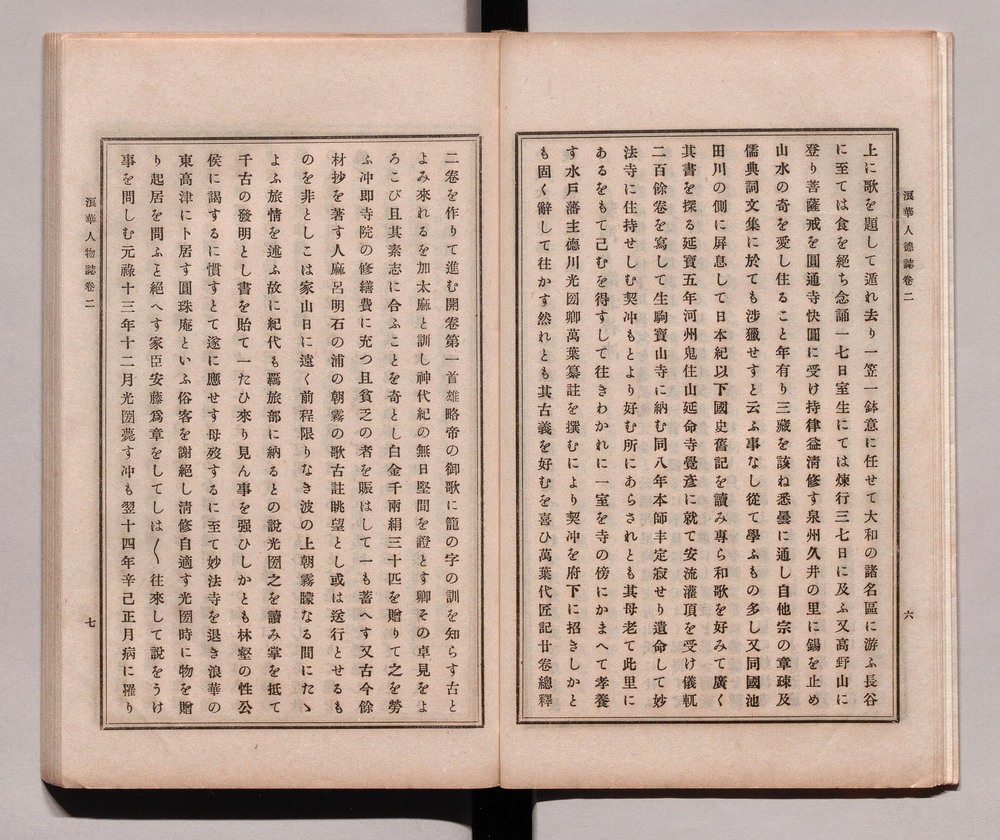 浪華人物誌卷二
六
上に歌を題して遁れ去り一笠一鉢意に任せて大和の諸名區に游ふ長谷
に至ては食を絶ち念誦一七日室生にては煉行三七日に及ふ又高野山に
登り菩薩戒を圓通寺快圓に受け持律益清修す泉州久井の里に錫を止め
山水の奇を愛し住ること年有り三藏を該ね悉曇に通し自他宗の章疎及
儒典詞文集に於ても渉獵せすと云ふ事なし從て學ふもの多し又同國池
田川の側に屏息して日本紀以下國史舊記を讀み專ら和歌を好みて廣く
其書を探る延寶五年河州鬼住山延命寺覺彥に就て安流灌頂を受け儀軌
二百餘卷を寫して生駒寶山寺に納む同八年本師丰定寂せり遺命して妙
法寺に住持せしむ契沖もとより好む所にあらされとも其母老て此里に
あるをもて己むを得すして往きわかれに一室を寺の傍にかまへて孝養
す水戸藩主德川光圀卿萬葉纂註を撰むにより契沖を府下に招きしかと
も固く辭して往かす然れとも其古義を好むを喜ひ萬葉代匠記廿卷總釋
二卷を作りて進む開卷第一首雄略帝の御歌に籠の字の訓を知らす古と
よみ來れるを加太麻と訓し神代紀の無目堅間を證とす卿その卓見をよ
ろこび且其素志に合ふことを奇とし白金千兩絹三十匹を贈りて之を勞
ふ冲即寺院の修繕費に充つ且貧乏の者を賑はして一も蓄へす又古今餘
材抄を著す人麻呂明石の浦の朝霧の歌古註眺望とし或は送行とせるも
のを非としこは家山日に遠く前程限りなき波の上朝霧朦なる間にたゝ
よふ旅情を述ふ故に紀代も羈旅部に納るとの說光圀之を讀み掌を抵て
千古の發明とし書を貽て一たひ來り見ん事を强ひしかとも林壑の性公
侯に謁するに慣すとて遂に應せす母歿するに至て妙法寺を退き浪華の
東高津に卜居す圓珠庵といふ俗客を謝絶し清修自適す光圀時に物を贈
り起居を問ふと絕へす家臣安藤爲章をしてしは〱往來して說をうけ
事を問しむ元祿十三年十二月光圀薨す冲も翌十四年辛己正月病に罹り
浪華人物誌卷二
七